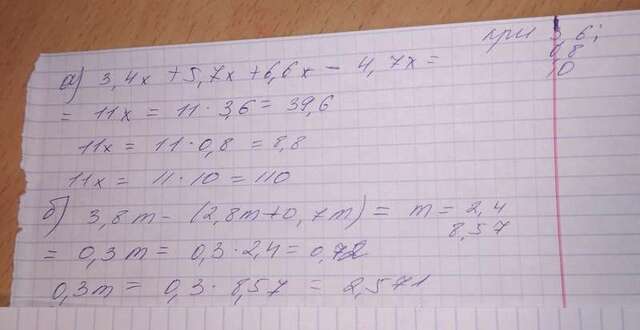 а) 3,4x + 5,7x + 6,6x - 4,7x = при 3,6;
0,8
10
= 11x = 11 · 3,6 = 39,6
11x = 11 · 0,8 = 8,8
11x = 11 · 10 = 110
б) 3,8m - (2,8m + 0,7m) = m = 2,4
8,57
= 0,3m = 0,3 · 2,4 = 0,72
0,3m = 0,3 · 8,57 = 2,571